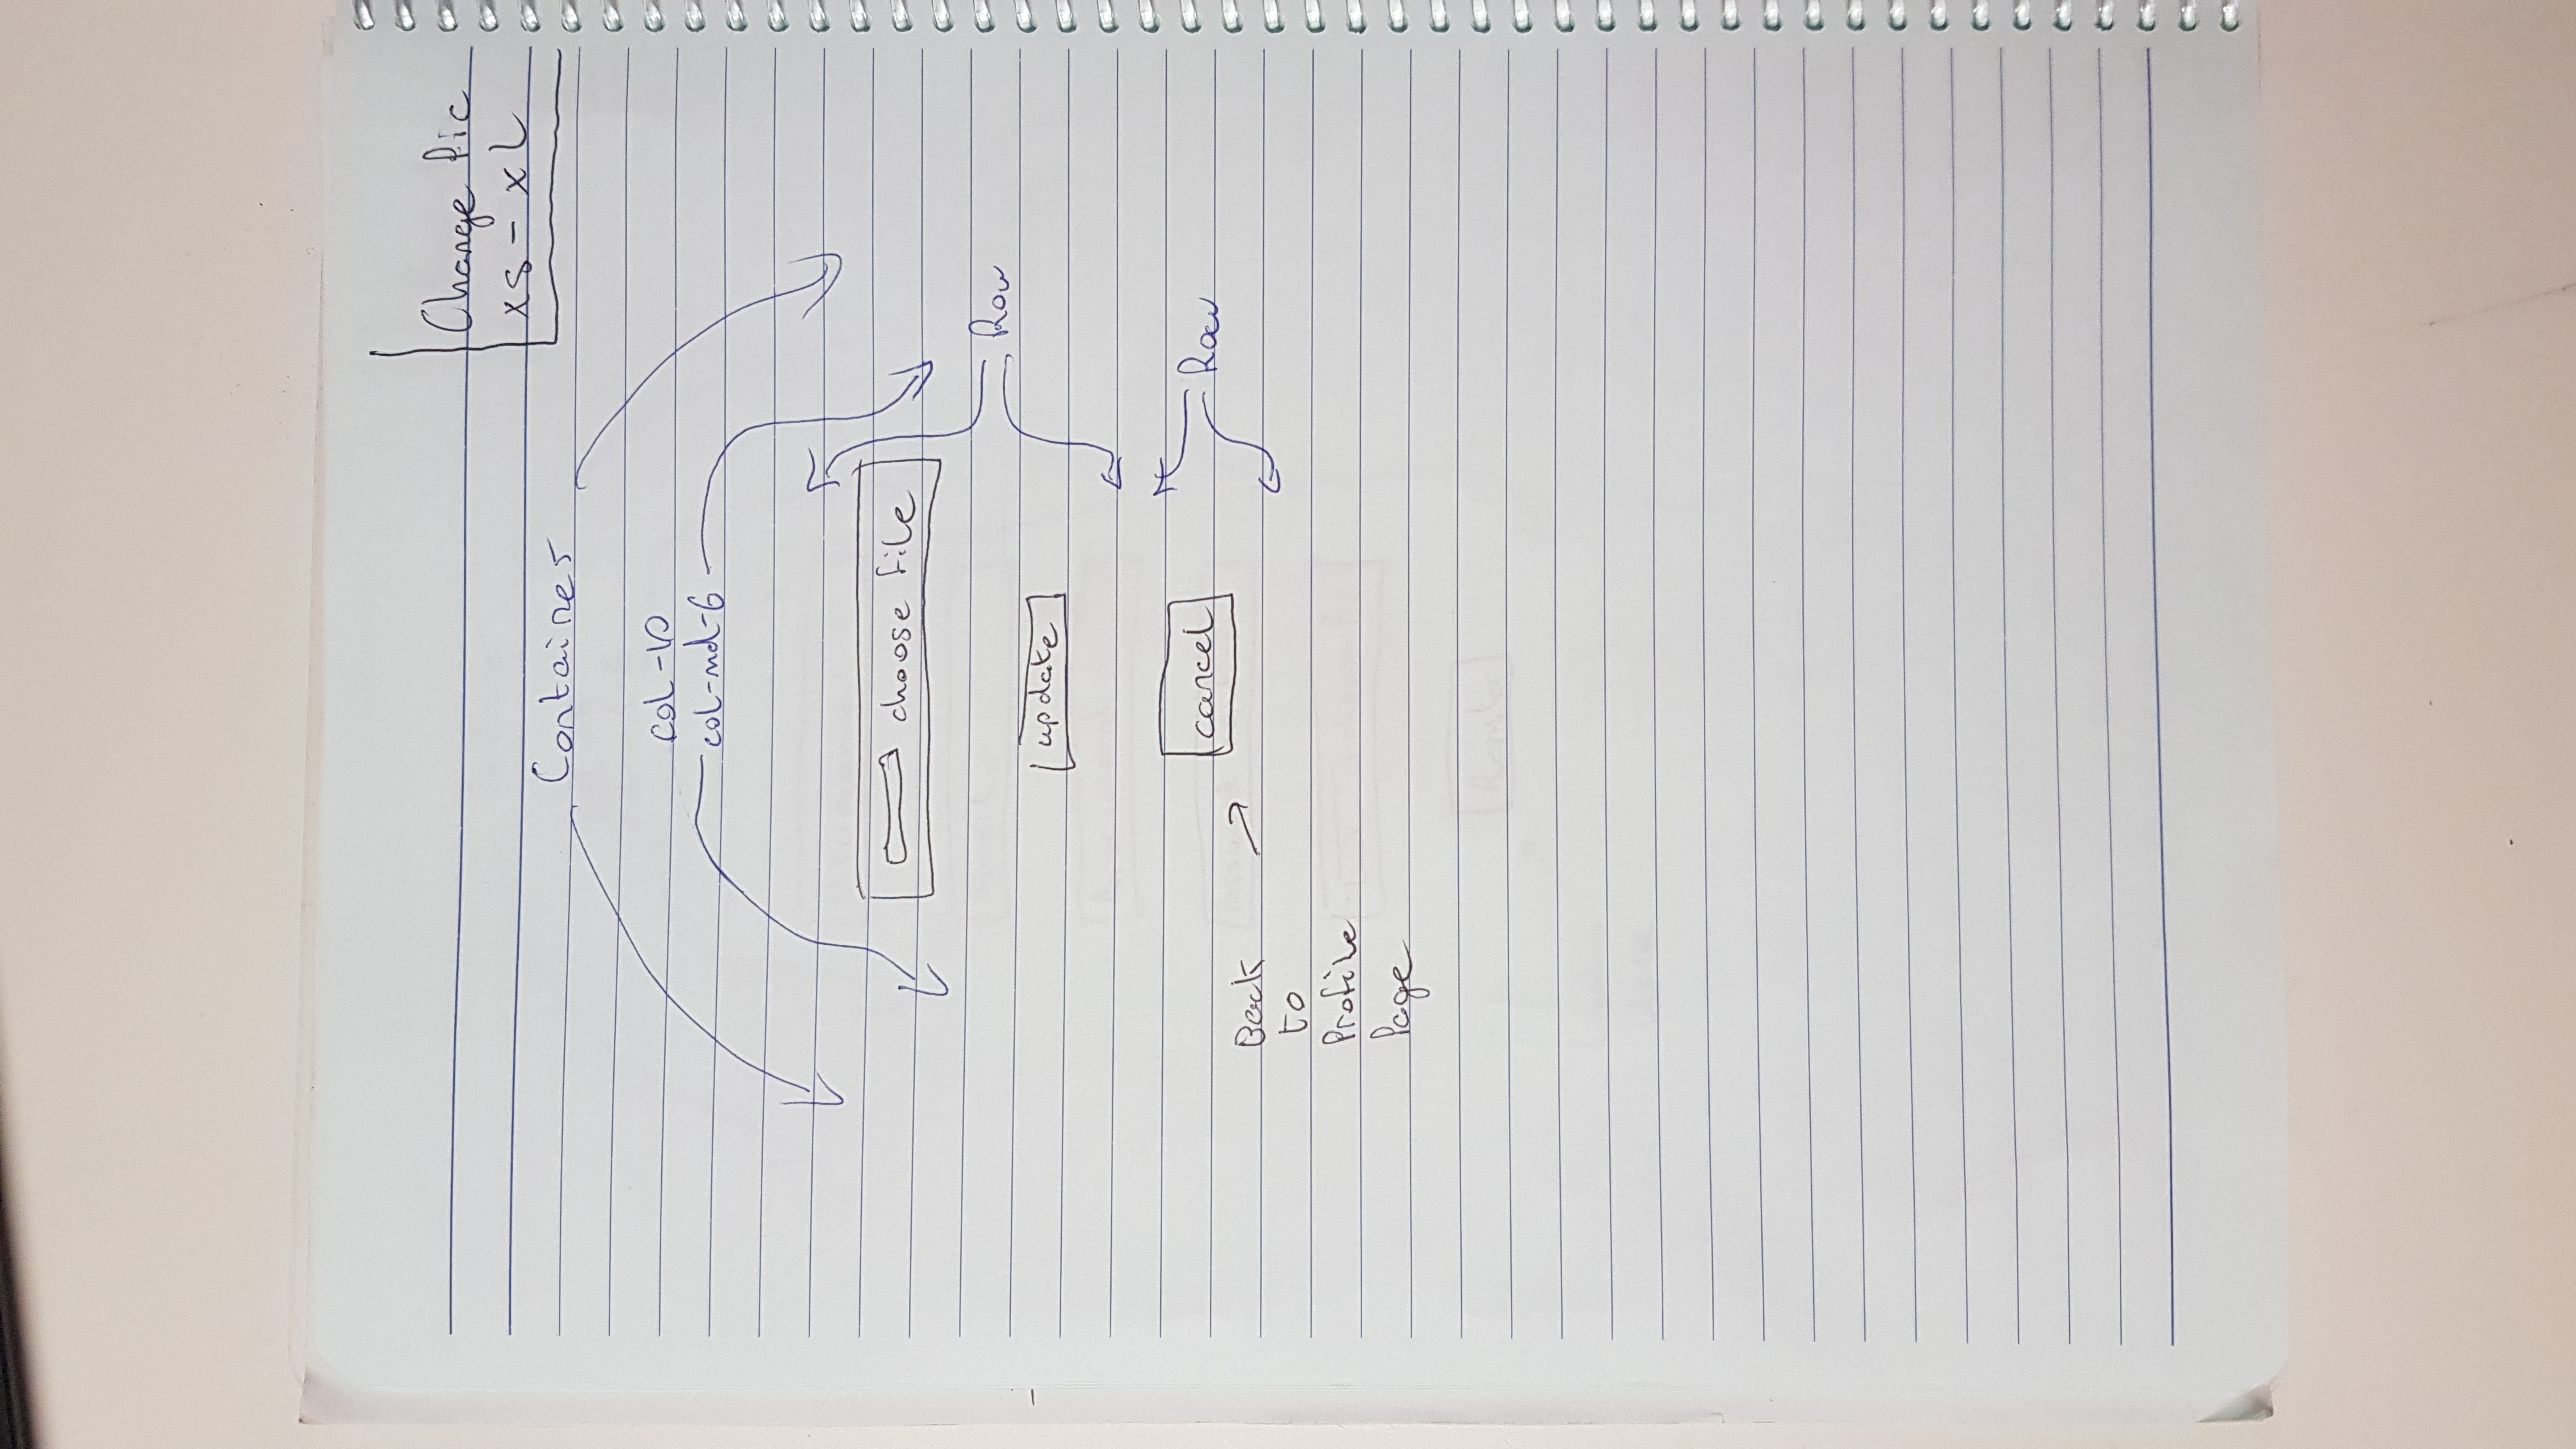 Change Pic
xs - xL
Container
col-10
col-md-6
choose file
Row
update
cancel
Row
Back
to
Profile
Page